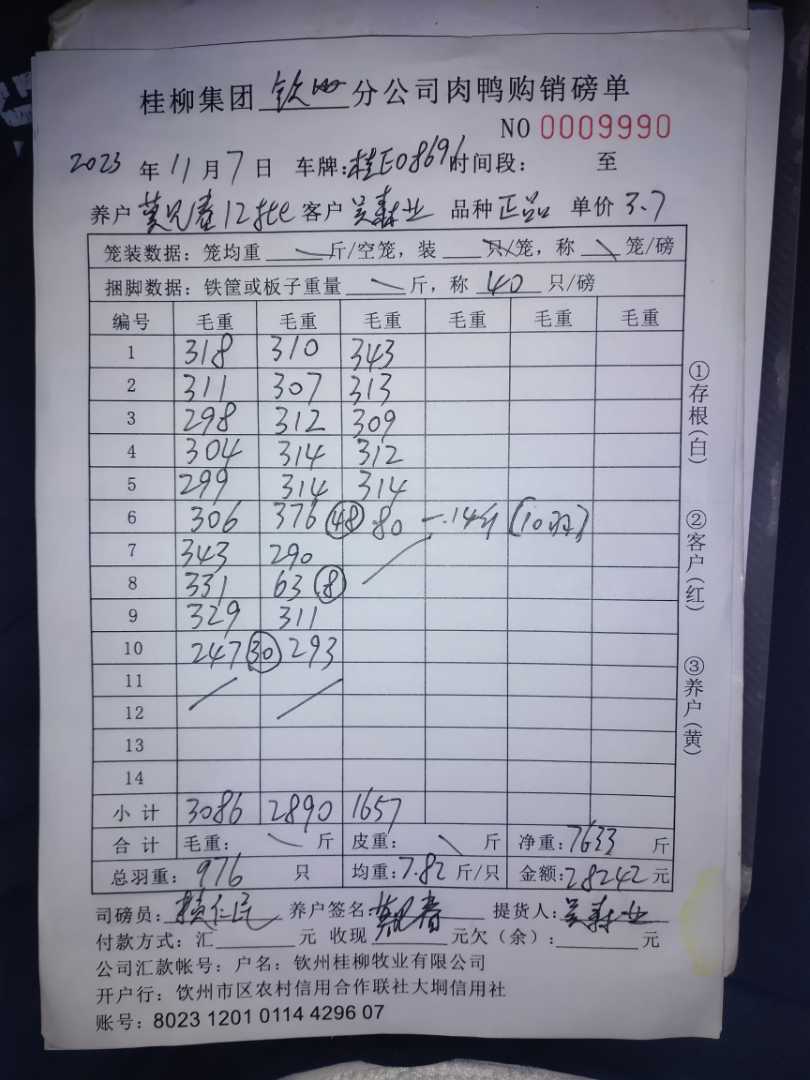 桂柳集团 钦州 分公司肉鸭购销磅单
NO 0009990
2023 年 11 月 7 日 车牌:桂E08696 时间段: 至
养户 莫兄春12批 客户 吴森业 品种 正品 单价 3.7
笼装数据: 笼均重 斤/空笼, 装 只/笼, 称 笼/磅
捆脚数据: 铁筐或板子重量 斤, 称 40 只/磅
编号 毛重 毛重 毛重 毛重 毛重 毛重
1 318 310 343
2 311 307 313
3 298 312 309
4 304 314 312
5 299 314 314
6 306 376 48 80 -.14斤 (10羽)
7 343 290
8 331 63 8
9 329 311
10 247 30 293
11
12
13
14
小计 3086 2890 1657
合计 毛重: 斤 皮重: 斤 净重: 7633 斤
总羽重: 976 只 均重: 7.82 斤/只 金额: 28242 元
司磅员: 赖仁民 养户签名: 莫兄春 提货人: 吴森业
付款方式: 汇 元 收现 元欠(余): 元
公司汇款帐号: 户名: 钦州桂柳牧业有限公司
开户行: 饮州市区农村信用合作联社大垌信用社
账号: 8023 1201 0114 4296 07
①存根(白)
②客户(红)
③养户(黄)